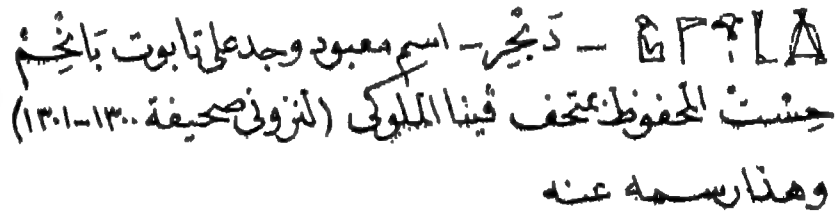 — دَنْجِر — اسم معبود وجد على تابوت بَانُحِمْ
حِسَتْ المحفوظ بمتحف ڤينا الملوكى (لنزونى صحيفة ١٣٠٠–١٣٠١)
وهذا رسمه عنه